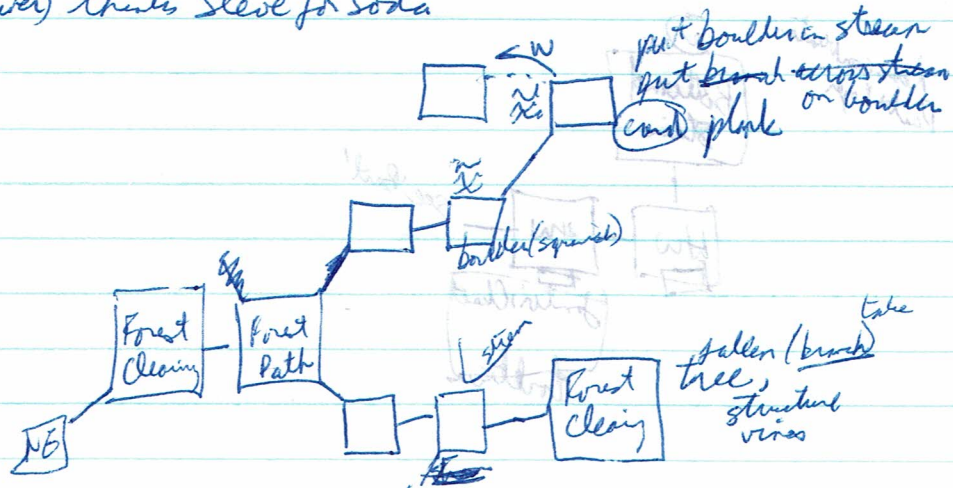 thinks Steve for soda
W
put boulder in stream
put branch across stream
on boulder
plank
boulder (squarish)
Forest
Clearing
Forest
Path
NE
Forest
Clearing
take
fallen (branch)
tree,
structure
vines